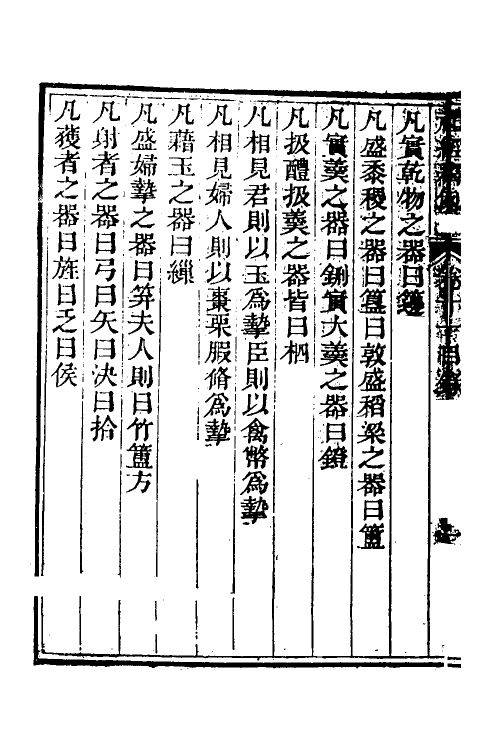 凡實乾物之器曰籩
凡盛黍稷之器曰簋曰敦盛稻粱之器曰簠
凡實羮之器曰鉶實大羮之器曰鐙
凡扱醴扱羮之器皆曰柶
凡相見君則以玉爲摯臣則以禽幣爲摯
凡相見婦人則以棗栗腶脩爲摯
凡藉玉之器曰繅
凡盛婦摯之器曰笲夫人則曰竹簠方
凡射者之器曰弓曰矢曰決曰拾
凡獲者之器曰旌曰乏曰侯